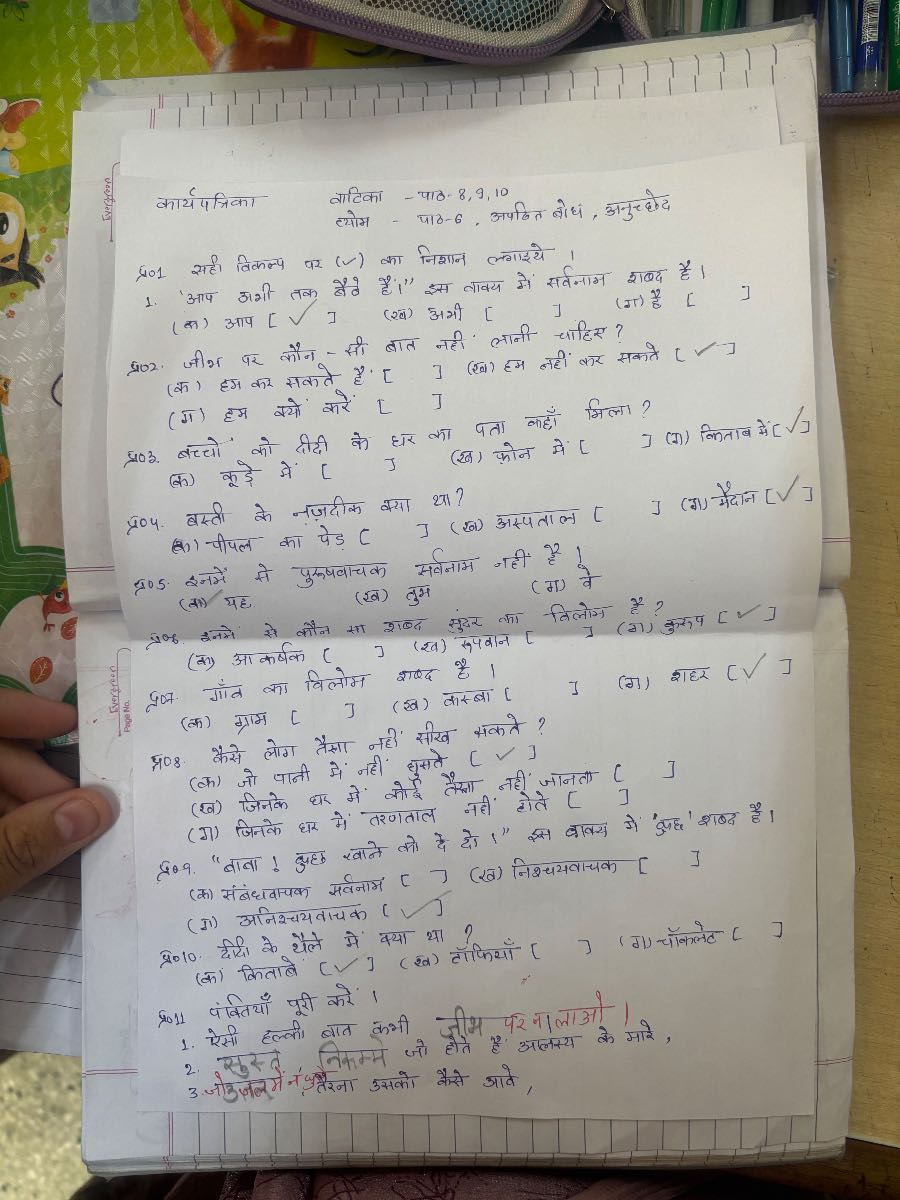 कार्यपत्रिका वाटिका - पाठ- 8, 9, 10
व्योम - पाठ-6 , अपठित बोध , अनुच्छेद
प्र01 सही विकल्प पर (✓) का निशान लगाइये ।
1. "आप अभी तक बैठे हैं।" इस वाक्य में सर्वनाम शब्द है ।
(क) आप [ ✓ ] (ख) अभी [ ] (ग) है [ ]
प्र02. जीभ पर कौन - सी बात नहीं लानी चाहिए ?
(क) हम कर सकते हैं [ ] (ख) हम नहीं कर सकते [ ✓ ]
(ग) हम क्यों करें [ ]
प्र03. बच्चों को दीदी के घर का पता कहाँ मिला ?
(क) कूड़े में [ ] (ख) फ़ोन में [ ] (ग) किताब में [ ✓ ]
प्र04. बस्ती के नज़दीक क्या था ?
(क) पीपल का पेड़ [ ] (ख) अस्पताल [ ] (ग) मैदान [ ✓ ]
प्र05. इनमें से पुरुषवाचक सर्वनाम नहीं है ।
(क) यह (ख) तुम (ग) वे
प्र06. इनमें से कौन सा शब्द सुंदर का विलोम है ?
(क) आकर्षक [ ] (ख) रूपवान [ ] (ग) कुरूप [ ✓ ]
प्र07. गाँव का विलोम शब्द है ।
(क) ग्राम [ ] (ख) कस्बा [ ] (ग) शहर [ ✓ ]
प्र08. कैसे लोग तैरना नहीं सीख सकते ?
(क) जो पानी में नहीं घुसते [ ✓ ]
(ख) जिनके घर में कोई तैरना नहीं जानता [ ]
(ग) जिनके घर में तरणताल नहीं होते [ ]
प्र09. "बाबा ! कुछ खाने को दे दो ।" इस वाक्य में 'कुछ' शब्द है ।
(क) संबंधवाचक सर्वनाम [ ] (ख) निश्चयवाचक [ ]
(ग) अनिश्चयवाचक [ ✓ ]
प्र010. दीदी के थैले में क्या था ?
(क) किताबें [ ✓ ] (ख) टॉफियाँ [ ] (ग) चॉकलेट [ ]
प्र011 पंक्तियाँ पूरी करें ।
1. ऐसी हल्की बात कभी जीभ पर न लाओ ।
2. सुस्त निकम्मे जो होते हैं आलस्य के मारे ,
3. जो जल में न घुसे , तैरना उसको कैसे आवे ,
Evergreen
Evergreen
Page No.